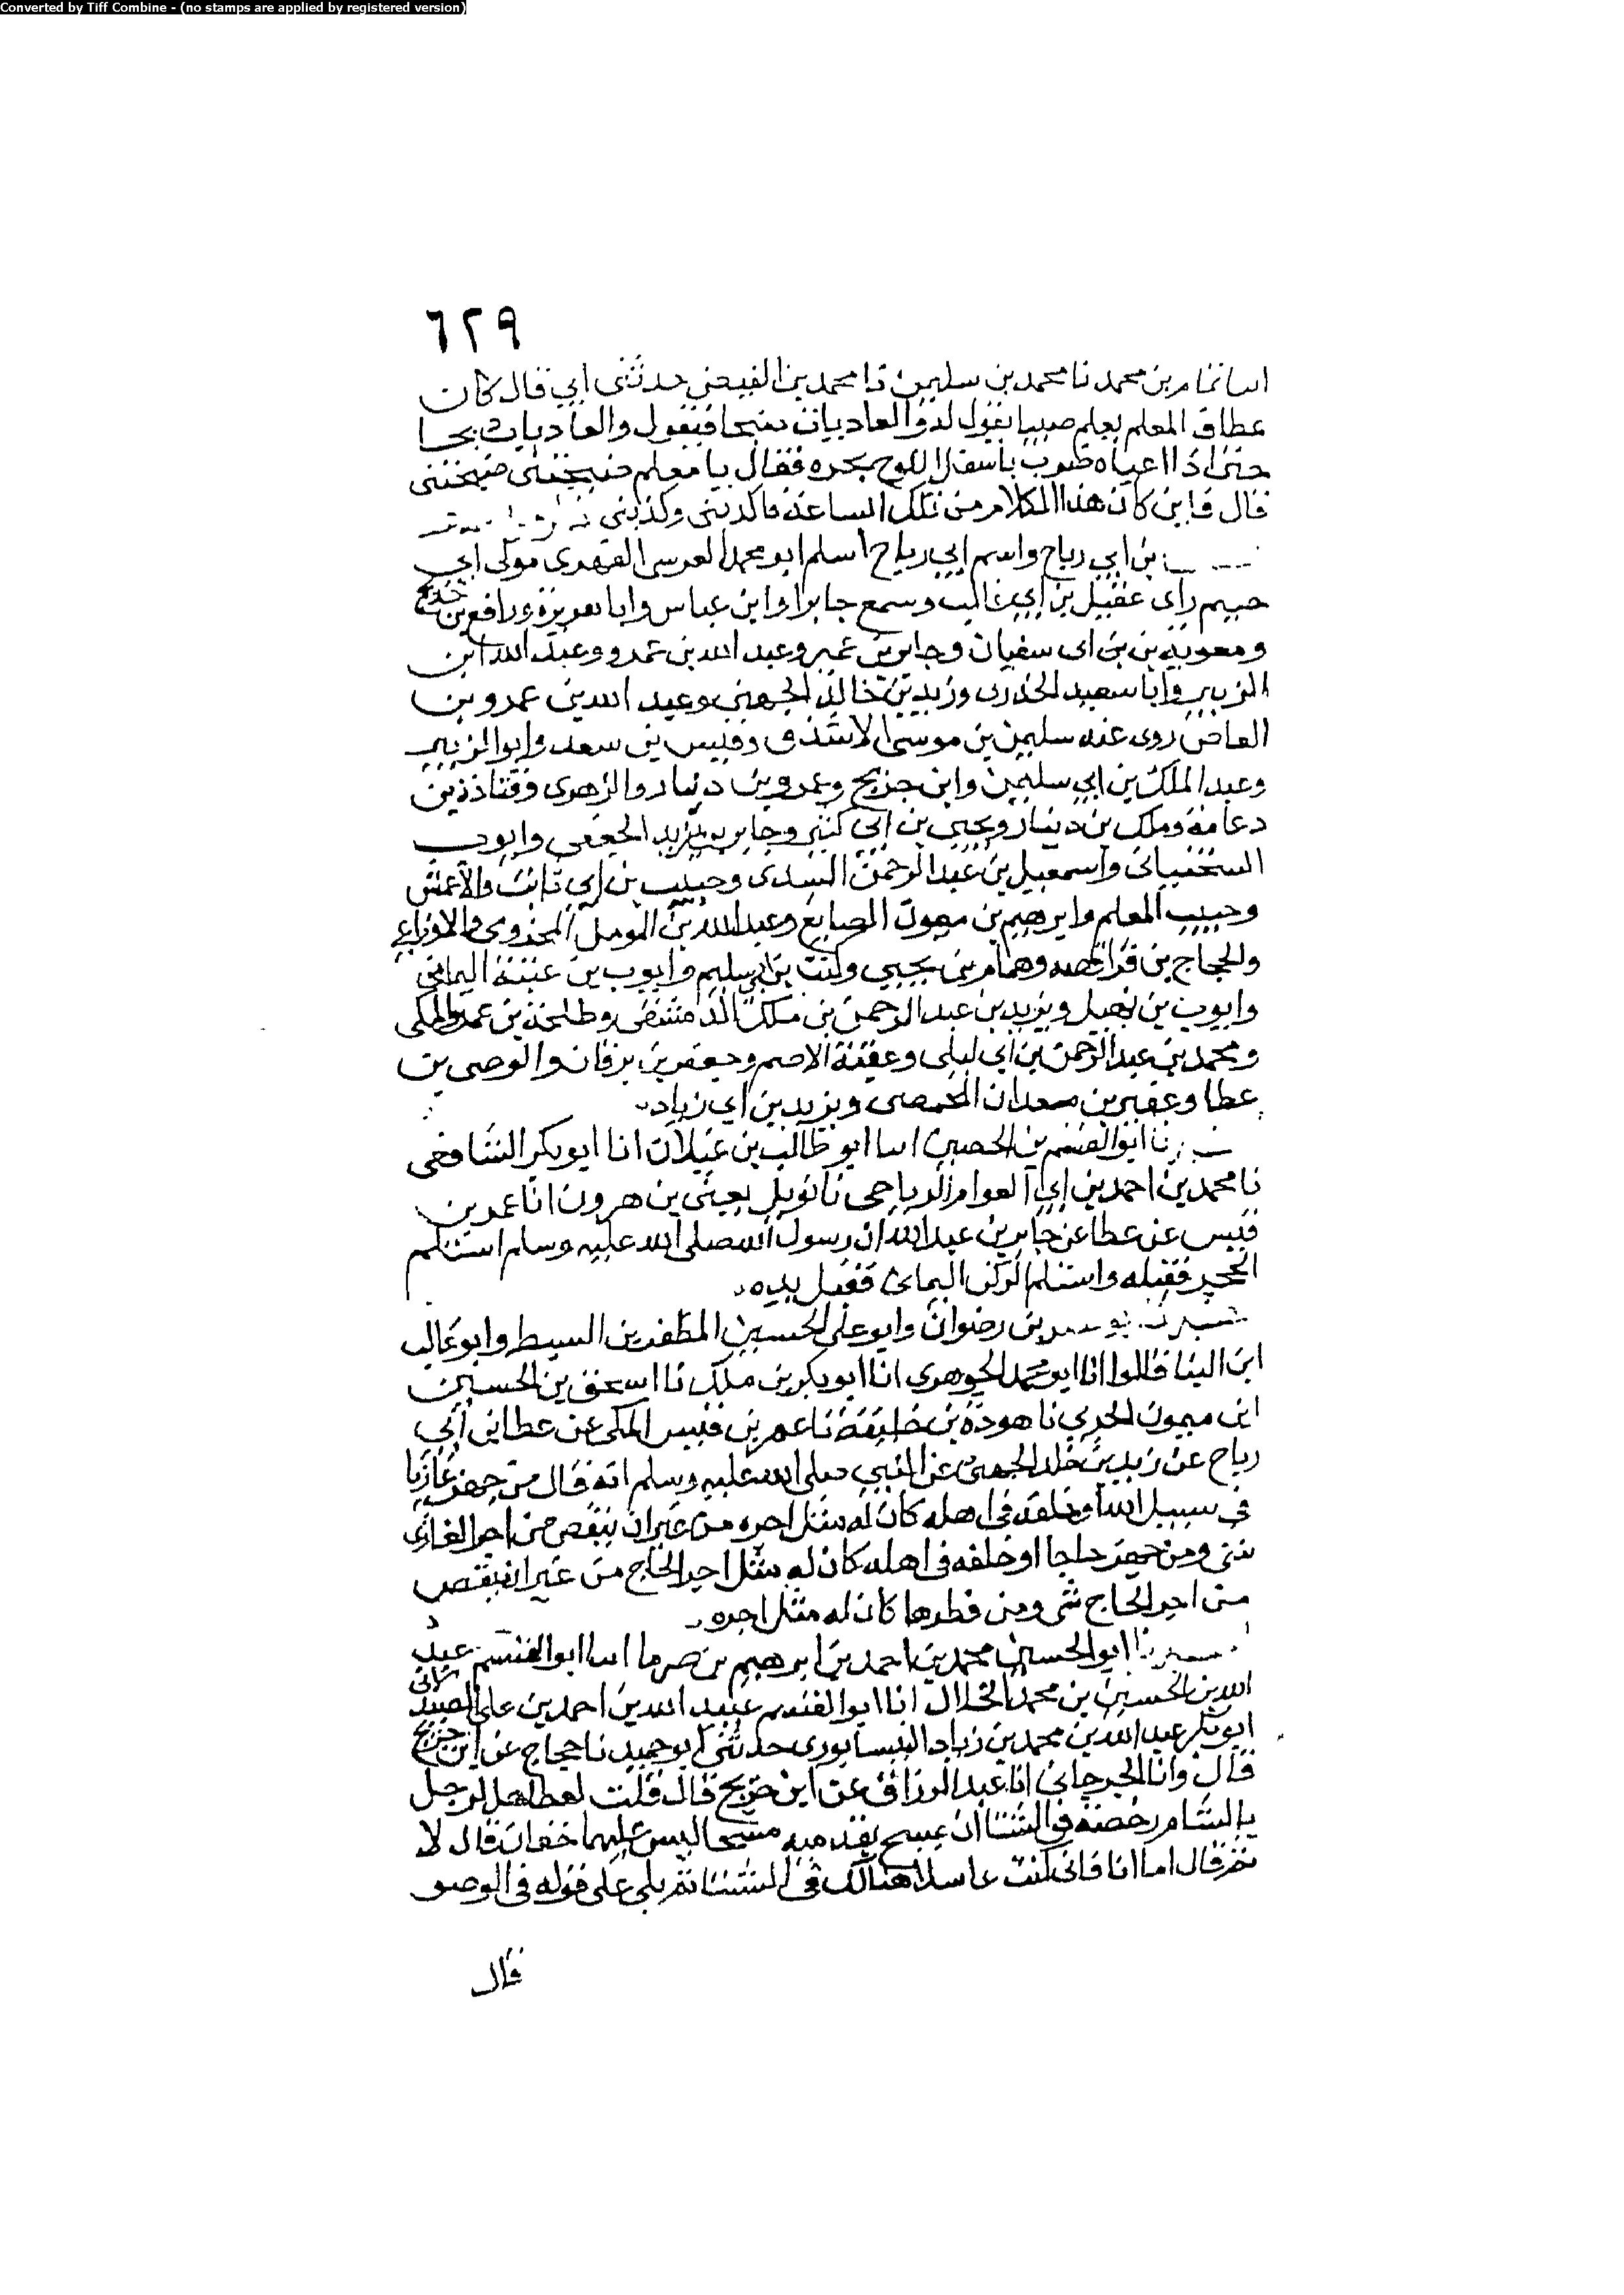 Converted by Tiff Combine - (no stamps are applied by registered version)
٦٢٩
انبا تمام بن محمد نا محمد بن سليمن نا محمد بن الفيض حدثني ابي قال كان
عطاف المعلم يعلم صبيا يقول له والعاديات ضبحا فيقول والعاديات بحا
حتى اذا اعياه ضرب باسفل اللوح بحره فقال يا معلم ضبحتنى ضبحتنى
قال فاين كان هذا الكلام من تلك الساعة وكذبني
بن ابي رباح واسم ابي رباح اسلم ابو محمد الفهري مولى ابي
راى عقيل بن ابي طالب وسمع جابرا وابن عباس وابا هريرة ورافع بن خديج
ومعوية بن بن ابى سفيان وجابر بن عمير وعبد الله بن عمرو وعبد الله ابن
الزبير وابا سعيد الخدرى وزيد بن خالد الجهني وعبد الله بن عمرو بن
العاص روى عنه سليمن بن موسى الاشدق وقيس بن سعد وابو الزبير
وعبد الملك بن ابي سليمن وابن جريج وعمرو بن دينار والزهرى وقتادة بن
دعامة وملك بن دينار ويحيى بن ابي كثير وجابر بن يزيد الجعفى وايوب
السختيانى واسمعيل بن عبد الرحمن السدى وحبيب بن ابي ثابت والاعمش
وحبيب المعلم وابرهيم بن ميمون الصايغ وعبد الله بن المومل المخزومى والاوزاعي
والحجاج بن وهمام بن يحيى وليث بن ابي سليم وايوب بن عتبة اليمامي
وايوب بن نهيك ويزيد بن عبد الرحمن بن ملك الدمشقى وطلحة بن عمرو المكى
ومحمد بن عبد الرحمن بن ابي ليلى وعقبة الاصم وجعفر بن برقان والوصى بن
عطا وعفير بن معدان الحمصى ويزيد بن ابي زياد
ابو القسم بن الحصين انبا ابو طالب بن غيلان انا ابو بكر الشافعى
نا محمد بن احمد بن ابي العوام الرياحى نا يزيد يعنى بن هرون انا عمر بن
قيس عن عطا عن جابر بن عبد الله ان رسول الله صلى الله عليه وسلم استلم
الحجر فقبله واستلم الركن اليمانى فقبل يده
بن رضوان وابو على الحسين المظفر بن السبط وابو غالب
ابن البنا قالوا انا ابو محمد الجوهرى انا ابو بكر بن ملك نا اسحق بن الحسين
ابن ميمون الحربي نا هوذة بن خليفة نا عمر بن قيس المكى عن عطا بن ابي
رباح عن زيد بن خلد الجهني عن النبي صلى الله عليه وسلم انه قال من جهز غازيا
في سبيل الله او خلفه فى اهله كان له مثل اجره من غير ان ينقص من اجر الغازى
شى ومن جهز حاجا او خلفه فى اهله كان له مثل اجر الحاج من غير ان ينقص
من اجر الحاج شى ومن فطر كان له مثل اجره
ابو الحسين محمد بن احمد بن ابرهيم بن صرما انبا ابو القسم عبد
الله بن الحسين بن محمد الخلال انا ابو القسم عبيد الله بن احمد بن على الصيدلانى
ابو بكر عبد الله بن محمد بن زياد النيسابورى حدثنى ابو حميد نا حجاج عن ابن جريج
قال وانا الجرجانى انا عبد الرزاق عن ابن جريج قال قلت لعطا هل لرجل
بالشام رخصة فى الشتا ان يمسح بقدميه مسحا ليس عليهما خفان قال لا
ثم قال اما انا فانى كنت غاسلا هنالك فى الشتا ثم على قوله فى الوضو
قال